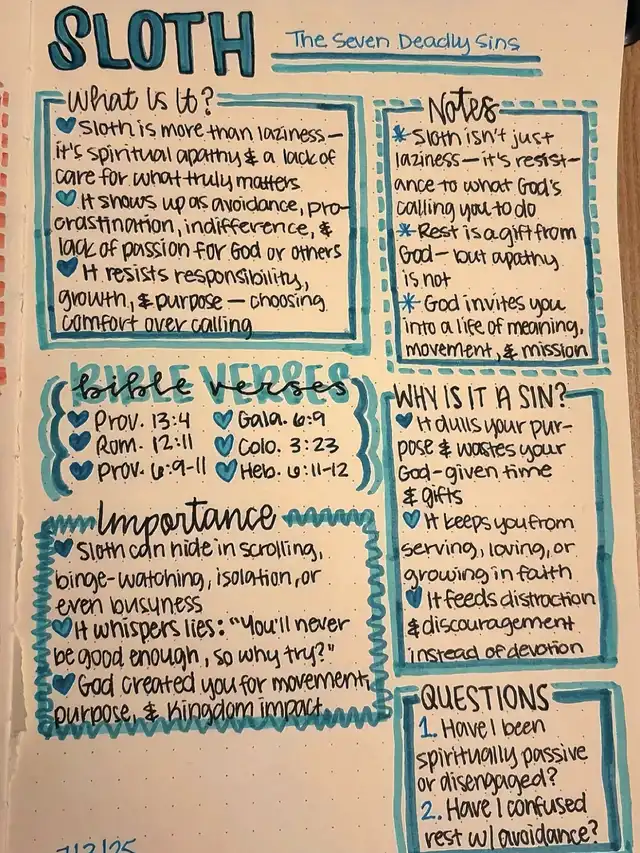 SLOTH
The Seven Deadly Sins
What Is It?
Sloth is more than laziness—
it's spiritual apathy & a lack of
care for what truly matters
It shows up as avoidance, pro-
crastination, indifference, &
lack of passion for God or others
It resists responsibility,
growth, & purpose — choosing
comfort over calling
Notes
* Sloth isn't just
laziness—it's resist-
ance to what God's
calling you to do
* Rest is a gift from
God—but apathy
is not
* God invites you
into a life of meaning,
movement, & mission
BIBLE VERSES
bible verses
Prov. 13:4
Rom. 12:11
Prov. 6:9-11
Gala. 6:9
Colo. 3:23
Heb. 6:11-12
WHY IS IT A SIN?
It dulls your pur-
pose & wastes your
God-given time
& gifts
It keeps you from
serving, loving, or
growing in faith
It feeds distraction
& discouragement
instead of devotion
Importance
Sloth can hide in scrolling,
binge-watching, isolation, or
even busyness
It whispers lies: "You'll never
be good enough, so why try?"
God created you for movement,
purpose, & Kingdom impact
QUESTIONS
1. Have I been
spiritually passive
or disengaged?
2. Have I confused
rest w/ avoidance?
7/2/25